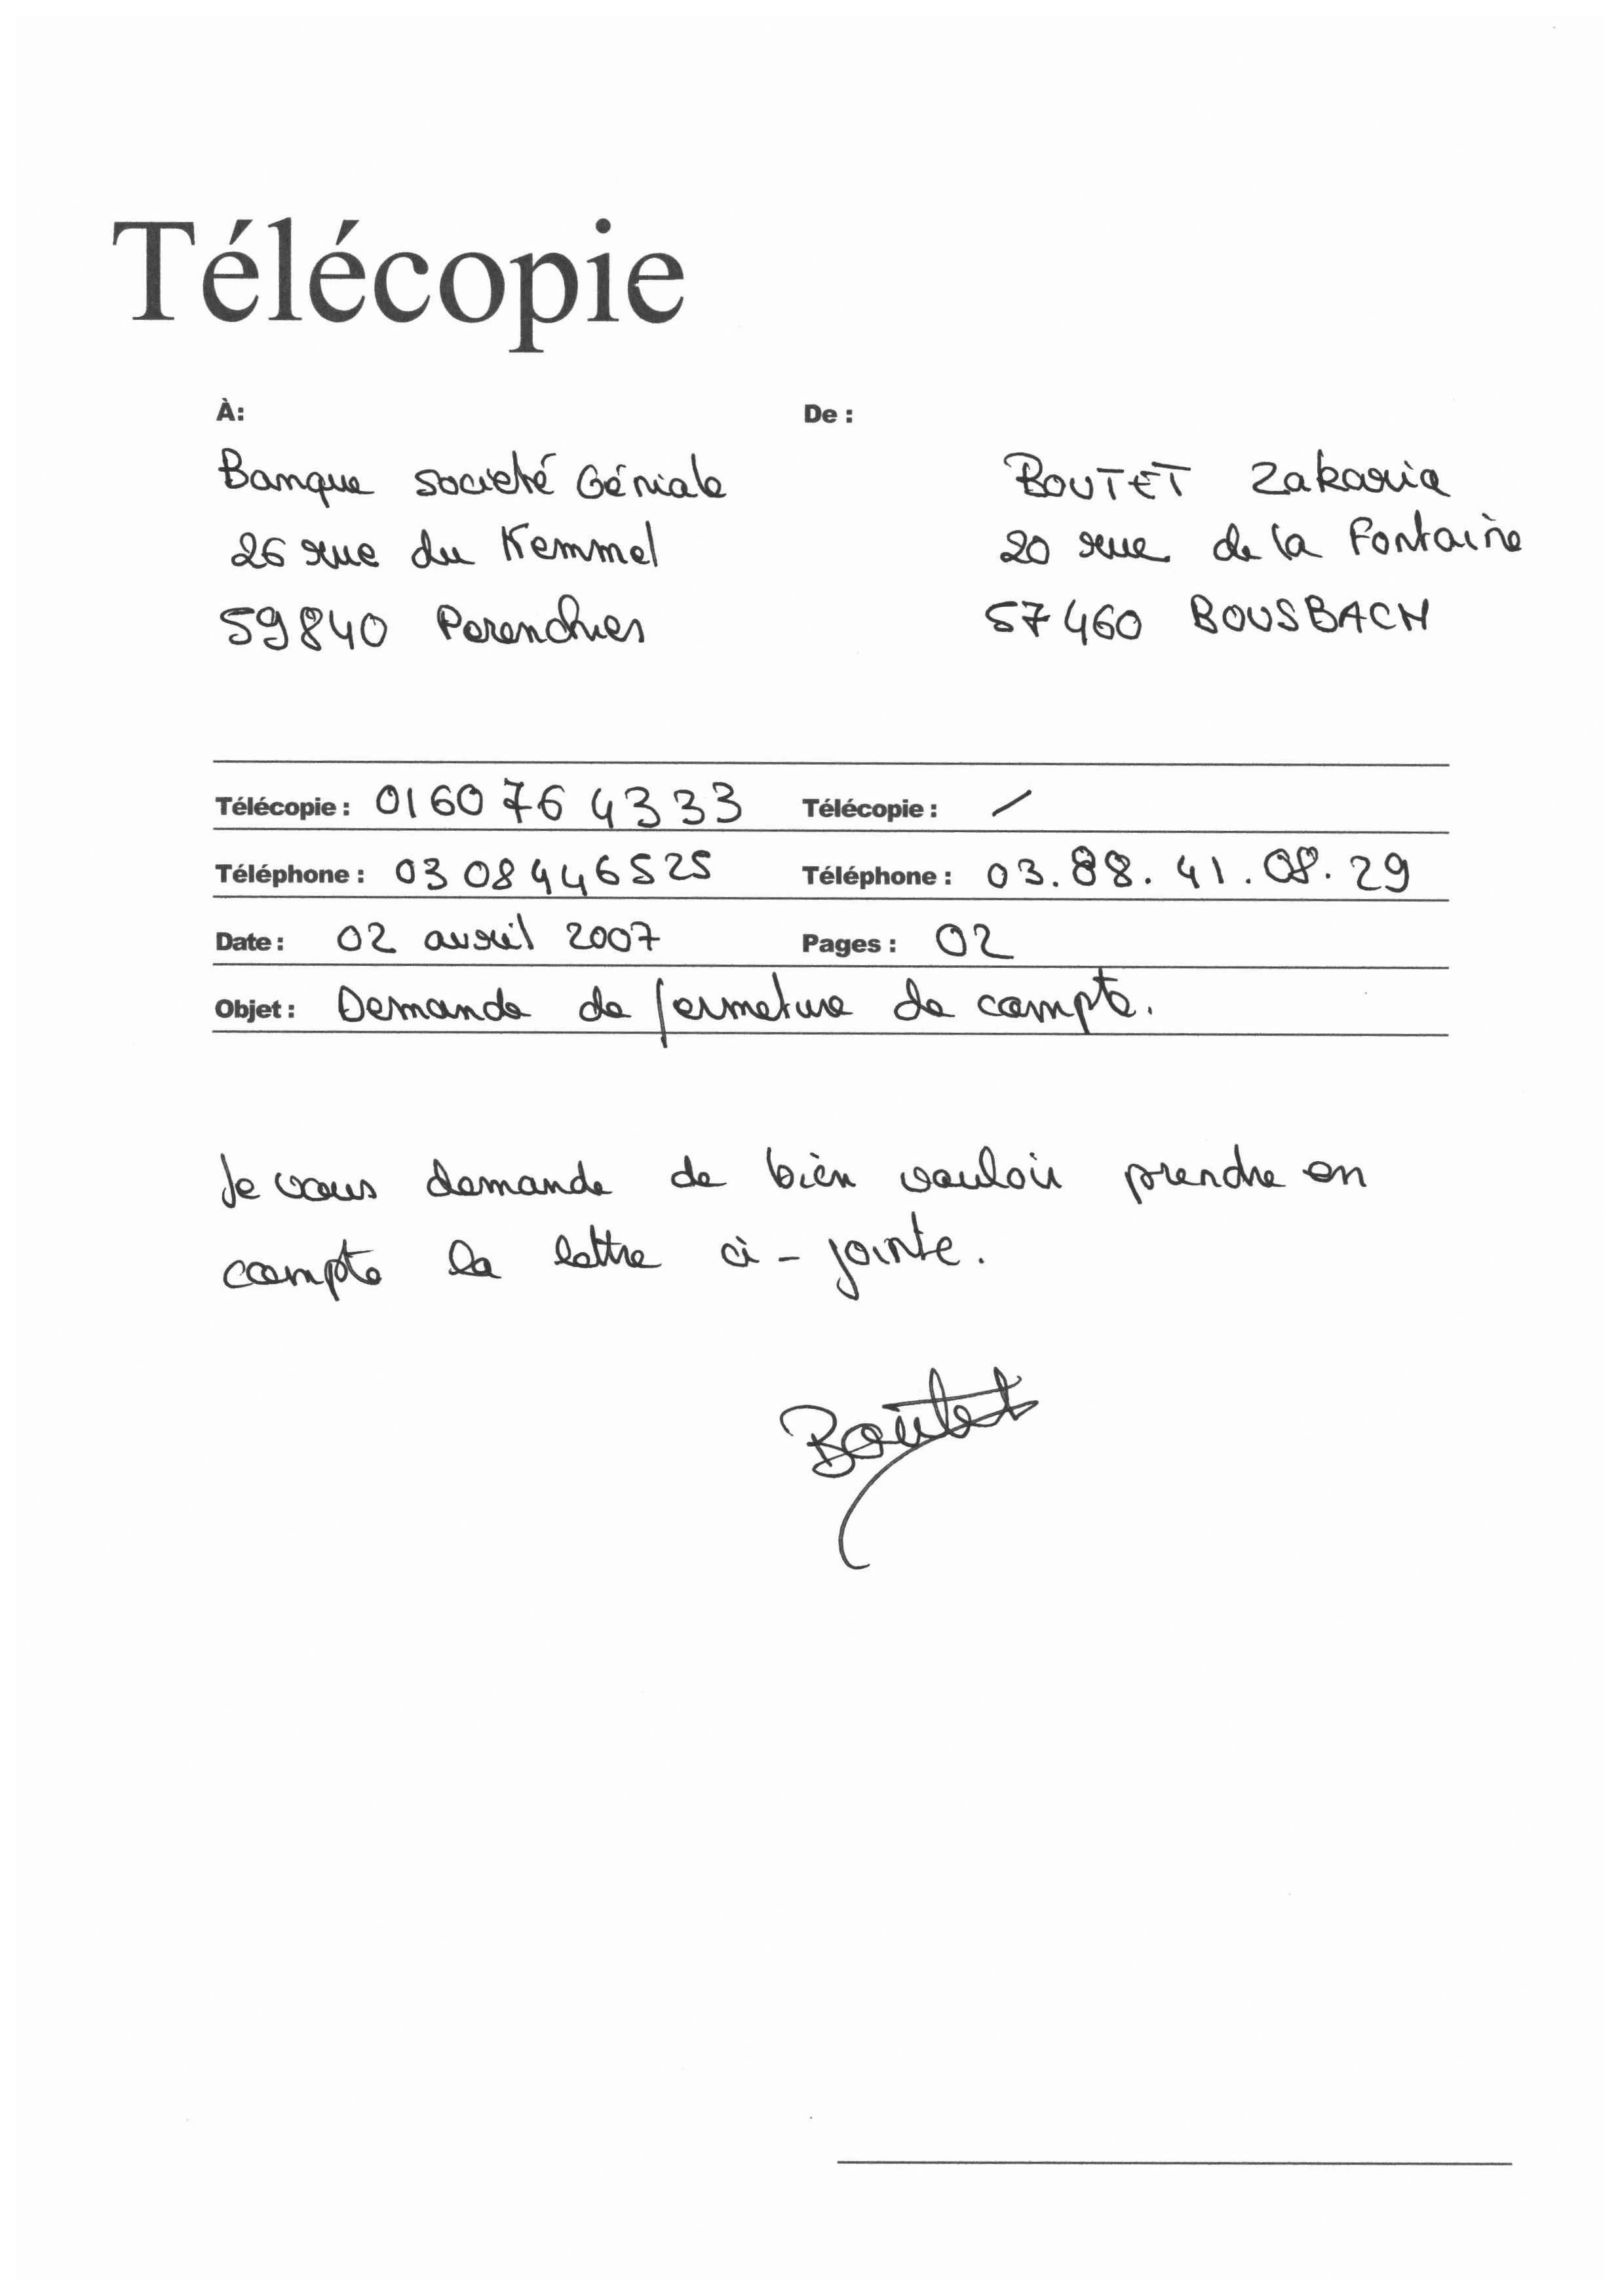 Télécopie
À: De :
Banque Société Géniale BOUTET Zakaria
26 rue du Kemmel 20 rue de la Fontaine
59840 Perenchies 57460 BOUSBACH
Télécopie : 0160764333 Télécopie : /
Téléphone : 0308446525 Téléphone : 03.88.41.08.29
Date : 02 avril 2007 Pages : 02
Objet : Demande de fermeture de compte.
Je vous demande de bien vouloir prendre en
compte la lettre ci-jointe.
Boutet